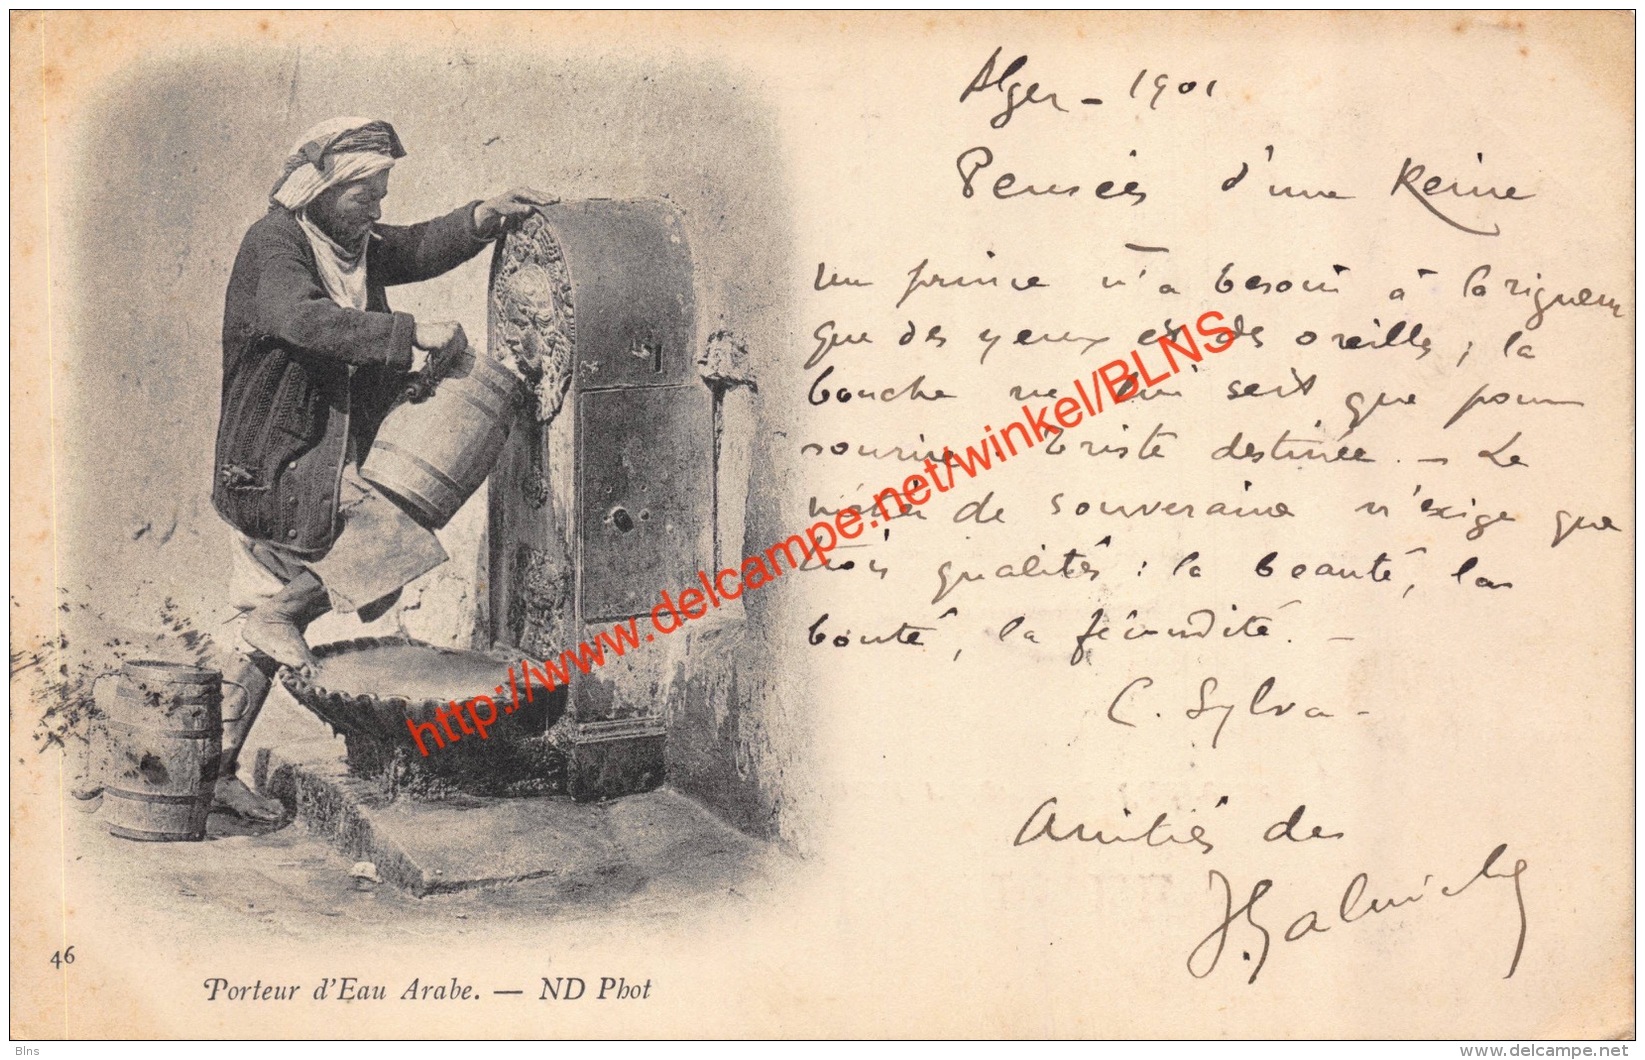 Alger - 1901
Pensées d'une Reine
Un prince n'a besoin à la rigueur
que des yeux et des oreilles ; la
bouche ne lui sert que pour
sourire. Triste destinée. - Le
métier de souveraine n'exige que
trois qualités : la beauté, la
bonté, la fécondité. -
C. Sylva -
Amitiés des
46
Porteur d'Eau Arabe. — ND Phot
http://www.delcampe.net/winkel/BLNS
Blns
www.delcampe.net